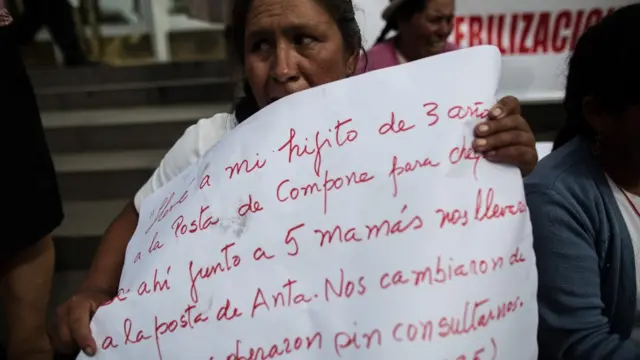 ERILIZACIO
"Llevé a mi hijito de 3 año
a la Posta de Compone para che
ahí junto a 5 mamás nos llevaro
a la posta de Anta. Nos cambiaron de
peraron sin consultarnos.